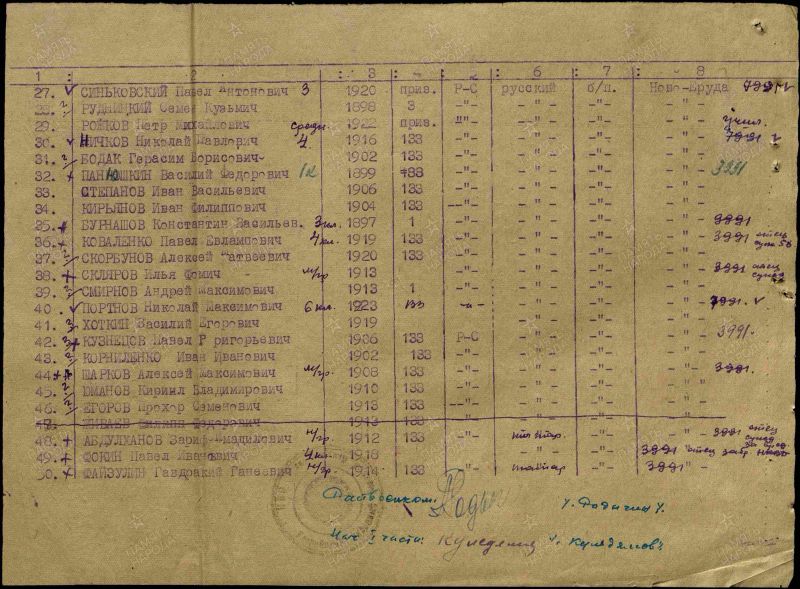 1 : 2 : 3 : 4 : 5 : 6 : 7 : 8
27. СИНЬКОВСКИЙ Павел Антонович 3 1920 приз. Р-С русский б/п. Ново-Еруда 3991
28. РУДНИЦКИЙ Семен Кузьмич 1898 3 -"- -"- -"- -"-
29. РОЖКОВ Петр Михайлович 1922 приз. "- -"- -"- - " -
30. НИЧКОВ Николай Павлович 4 1916 133 -"- -"- -"- - " - 3991
31. БОДАК Герасим Борисович 1902 133 -"- -"- -"- - " -
32. ПАНЮШКИН Василий Федорович 1899 133 -"- -"- -"- - " - 3991
33. СТЕПАНОВ Иван Васильевич 1906 133 -"- -"- -"- - " -
34. КИРЬЯНОВ Иван Филиппович 1904 133 -"- -"- -"- - " -
35. БУРНАШОВ Константин Васильев. 3 кл. 1897 1 -"- -"- -"- - " - 3991
36. КОВАЛЕНКО Павел Евлампович 4 кл. 1919 133 -"- -"- -"- - " - 3991
37. СКОРБУНОВ Алексей Матвеевич 1920 133 -"- -"- -"- - " -
38. СКЛЯРОВ Илья Фомич м/гр 1913 -"- -"- -"- - " - 3991
39. СМИРНОВ Андрей Максимович 1913 1 -"- -"- -"- - " -
40. ПОРТНОВ Николай Максимович 6 кл. 1923 133 -"- -"- -"- - " - 3991. v
41. ХОТКИН Василий Егорович 1919 -"- -"- - " -
42. КУЗНЕЦОВ Павел Григорьевич 1906 133 Р-С -"- -"- - " - 3991.
43. КОРНИЛЕНКО Иван Иванович 1902 133 -"- -"- -"- - " -
44. ШАРКОВ Алексей Максимович м/гр. 1908 133 -"- -"- -"- - " - 3991.
45. ЮМАНОВ Кирилл Владимирович 1910 133 -"- -"- -"- - " -
46. ЕГОРОВ Прохор Семенович 1913 133 -"- -"- -"- - " -
47. Федорович 1913 133 -"- -"- -"- - " -
48. АБДУЛХАНОВ Н/гр. 1912 133 -"- -"- - " - 3991
49. ФОКИН Павел Иванович 4 кл. 1918 -"- -"- -"- 3991
50. ФАЙЗУЛИН Ганеевич Н/гр. 1914 133 -"- татар -"- 3991 "
Райвоенком:
/. Родичин /.
Нач. части: